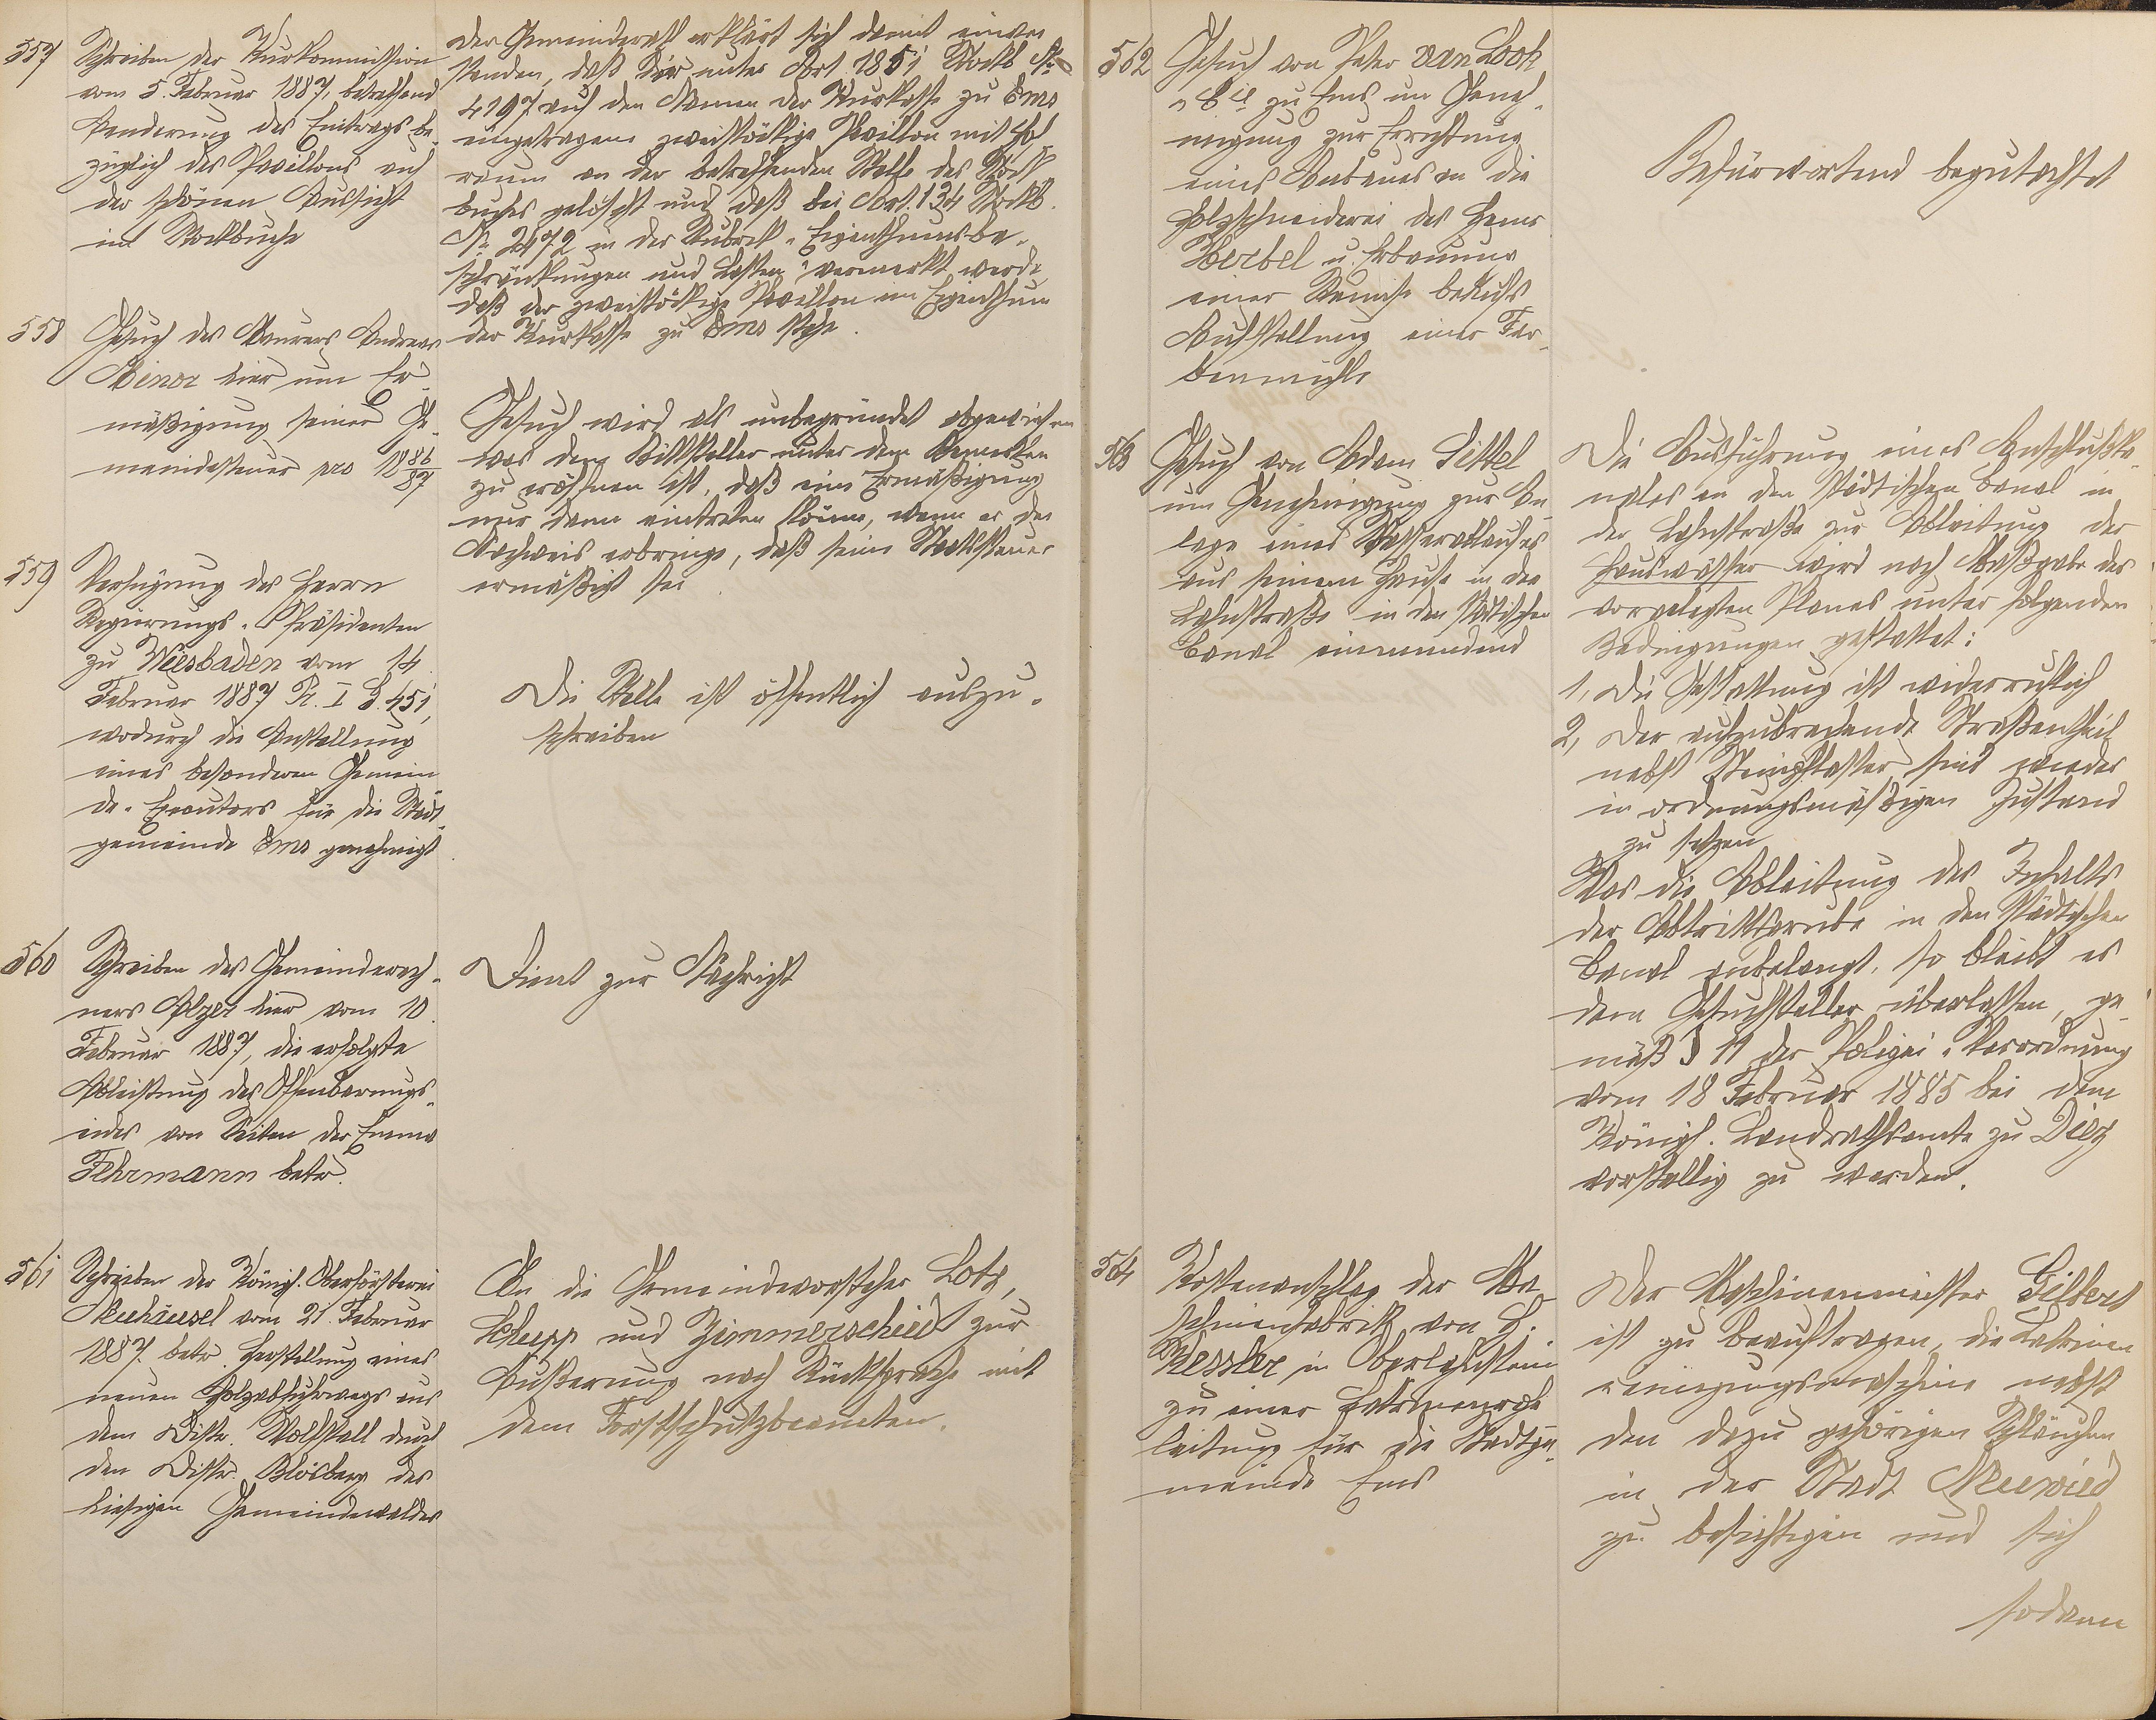 557
Schreiben der Kurkommission
vom 5. Februar 1887, betreffend
Aenderung des Eintrags be-
züglich des Pavillons auf
der schönen Aussicht
im Stockbuche
Der Gemeinderath erklärt sich damit einver
standen, daß der unter Art. 1851 Stockb. No
4197 auf den Namen der Kurkasse zu Ems
eingetragene zweistöckige Pavillon mit Hof
raum an der betreffenden Stelle des Stock
buches gelöscht und daß bei Art. 134 Stockb.
No 2472 in der Rubrik „Eigenthumsbe-
schränkungen und Lasten“ vermerkt werde
daß der zweistöckige Pavillon im Eigenthum
der Kurkasse zu Ems stehe.
558
Gesuch des Maurers Andreas
Minor hier um Er-
mäßigung seiner Ge-
meindesteuer pro 1886/87
Gesuch wird als unbegründet abgewiesen
was dem Bittsteller unter dem Bemerken
zu eröffnen ist, daß eine Ermäßigung
nur dann eintreten könne, wenn er den
Nachweis erbringe, daß seine Staatssteuer
ermäßigt sei.
559
Verfügung des Herrn
Regierungs-Präsidenten
zu Wiesbaden vom 14.
Februar 1887 Pr. I G. 451,
wodurch die Anstellung
eines besonderen Gemein
de-Executors für die Stadt-
gemeinde Ems genehmigt.
Die Stelle ist öffentlich auszu-
schreiben
560
Schreiben des Gemeinderech-
ners Alzer hier vom 10.
Februar 1887, die erfolgte
Ableistung des Offenbarungs-
eides von Seiten der Emma
Fehrmann betr.
Dient zur Nachricht
561
Schreiben der Königl. Oberförsterei
Neuhäusel vom 21. Februar
1887 betr. Herstellung eines
neuen Holzabfuhrwegs aus
dem Distr. Wolfstall durch
den Distr. Blösberg des
hiesigen Gemeindewaldes
An die Gemeindevorsteher Lotz,
Schupp und Zimmerschied zur
Äußerung nach Rücksprache mit
dem Forstschutzbeamten.
562
Gesuch von Peter van Look
& Cie zu Ems um Geneh-
migung zur Errichtung
eines Anbaues an die
Holzschneiderei des Herrn
Herbel u. Erbauung
einer Remise behufs
Aufstellung einer Far-
benmühle
Befürwortend begutachtet
563
Gesuch von Adam Sittel
um Genehmigung zur An
lage eines Wasserablaufes
aus seinem Hause in der
Lahnstraße in den städtischen
Canal einmündend
Die Ausführung eines Anschlußka-
nales an den städtischen Canal in
der Lahnstraße zur Ableitung der
Hauswässer wird nach Maßgabe des
vorgelegten Planes unter folgenden
Bedingungen gestattet:
1, Die Gestattung ist widerruflich
2, Der aufzubrechende Straßentheil
nebst Steinpflaster sind wieder
in ordnungsmäßigen Zustand
zu setzen
Was die Ableitung des Inhalts
der Abtrittsgrube in den städtischen
Canal anbelangt, so bleibt es
dem Gesuchsteller überlassen, ge-
mäß § 11 der Polizei-Verordnung
vom 18 Februar 1885 bei dem
Königl. Landrathsamte zu Diez
vorstellig zu werden.
564
Kostenanschlag der Ma
schinenfabrik von G.
Kessler in Oberlahnstein
zu einer Latrinenrohr
leitung für die Stadtge-
meinde Ems
Der Maschinenmeister Gilbert
ist zu beauftragen, die Latrinen
reinigungsmaschine nebst
den dazu gehörigen Schläuchen
in der Stadt Neuwied
zu besichtigen und sich
sodann